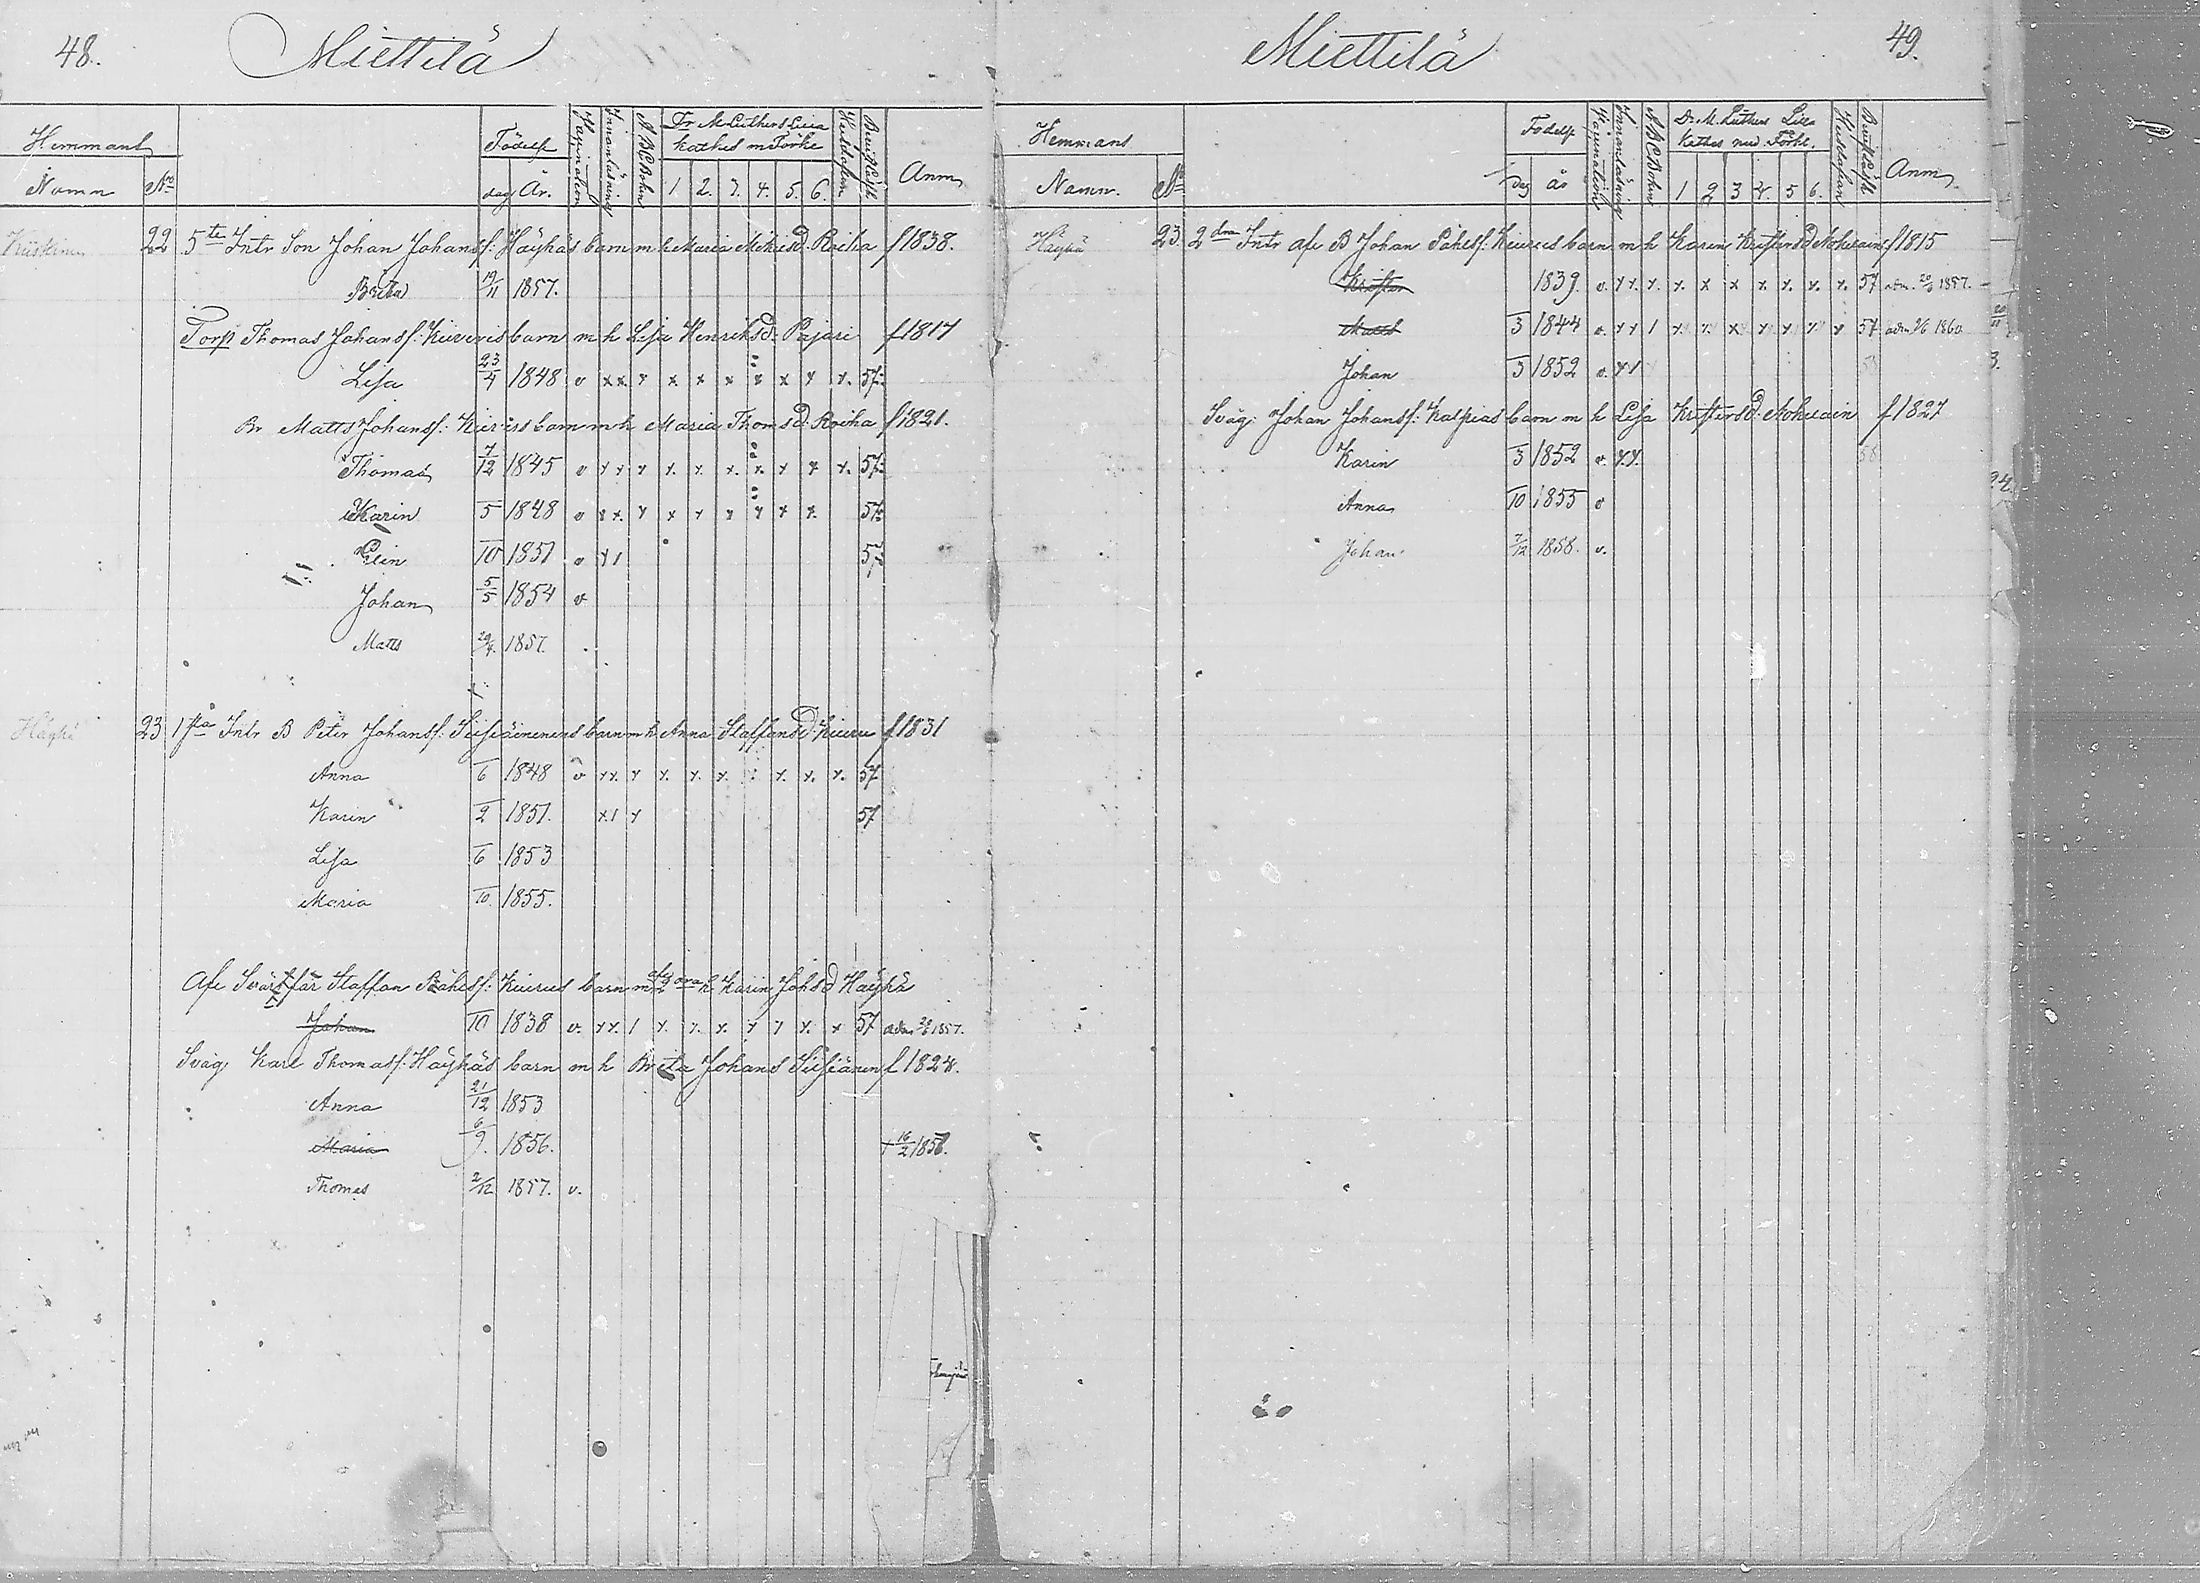 48. Miettilä
Hemmans Födelse Vaccination Innanläsning A B C Boken Dr M Luthers Lilla kathes m Förkl. Hustaflan Anm
Namn No dag År. 1 2. 3. 4. 5. 6.
22 5te Intr Son Johan Johans f: Häyhäs barn m h Maria Mikels d. Roiha f 1838.
Brita 19/11 1857.
Torp Thomas Johans f. Kiurus barn m h Lisa Henriks d: Pajari f 1817
Lisa 23/4 1848 v x x x x x x x x x x. 57.
Br Matts Johans f: Kiurus barn m h Maria Thoms d. Roiha f 1821.
Thomas 7/12 1845 v x x x x. x. x. x x x x. 57.
Karin 5 1848 v x x. x x x x x x x. 57.
Elin 10 1851 v x 1 57.
Johan 5/5 1854 v
Matts 29/4. 1857.
Häyhä 23 1sta Intr B Peter Johans f: Siisiäinens barn m h Anna Staffans d. Kiuru f 1831
Anna 6 1848 v x x. x x. x. x. x x. x. x. 57
Karin 2 1851. x 1 x 57
Lisa 6 1853
Maria 10. 1855.
Afl Svärfar Staffan Påhls f: Kiurus barn m h Karin Johs d Häyhä
Johan 10 1838 v. x x. 1 x. x. x. x x x. x 57 adm 20/6 1857.
Svåg. Karl Thomas f. Häyhäs barn m h Brita Johans Siisiäinen f 1824.
Anna 21/12 1853
Maria 6/9. 1856. † 16/2 1858.
Thomas 2/12 1857. v.
Miettilä 49.
Hemmans Födelse Vaccination Innanläsning A B C Boken Dr. M. Luthers Lilla Kathes med Förkl. Hustaflan Anm
Namn. No dag år 1 2 3 4. 5 6.
Häyhä 23. 2dra Intr afl B Johan Påhls f. Kiurus barn m h Karin Kristers d Mohuain f 1815
Krister 1839. v. x x. x. x. x x x. x. x. x. 57 adm. 20/6 1857.
Matts 3 1844 v. x x 1 x. x. x x x x x 57 adm 1860
Johan 3 1852 v. x 1 58
Svåg. Johan Johans f: Kalpias barn m h Lisa Kristers d. Mohuain f 1827
Karin 3 1852 v. x x. 58
Anna 10 1855 v
Johan 7/12 1858. v.